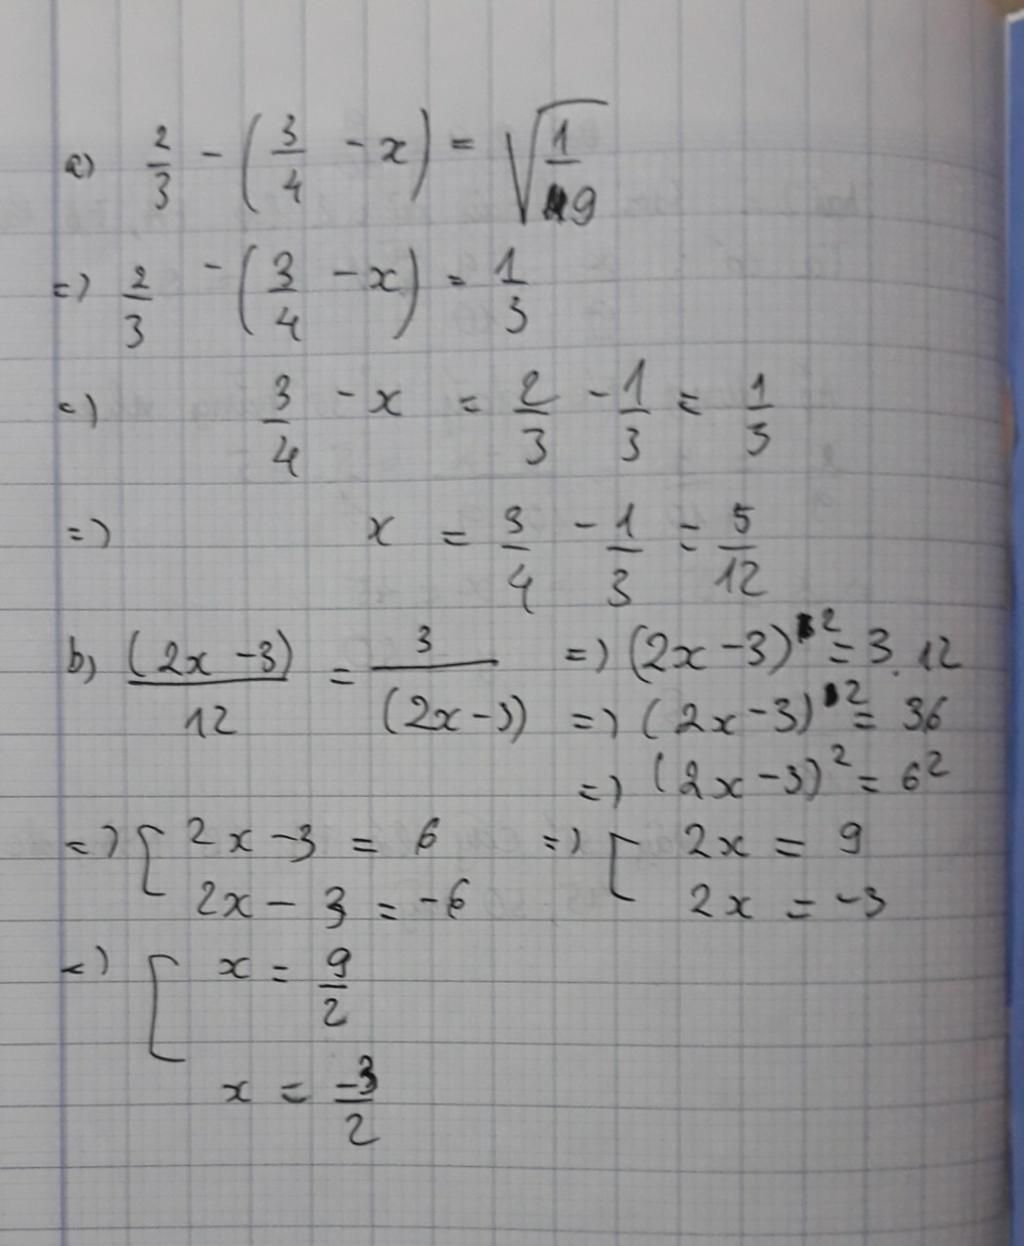 a) 2/3 - (3/4 - x) = √(1/9)
=) 2/3 - (3/4 - x) = 1/3
=) 3/4 - x = 2/3 - 1/3 = 1/3
=) x = 3/4 - 1/3 = 5/12
b) (2x - 3)/12 = 3/(2x - 3) =) (2x - 3)² = 3.12
=) (2x - 3)² = 36
=) (2x - 3)² = 6²
=) [ 2x - 3 = 6 =) [ 2x = 9
2x - 3 = -6 2x = -3
=) [ x = 9/2
x = -3/2